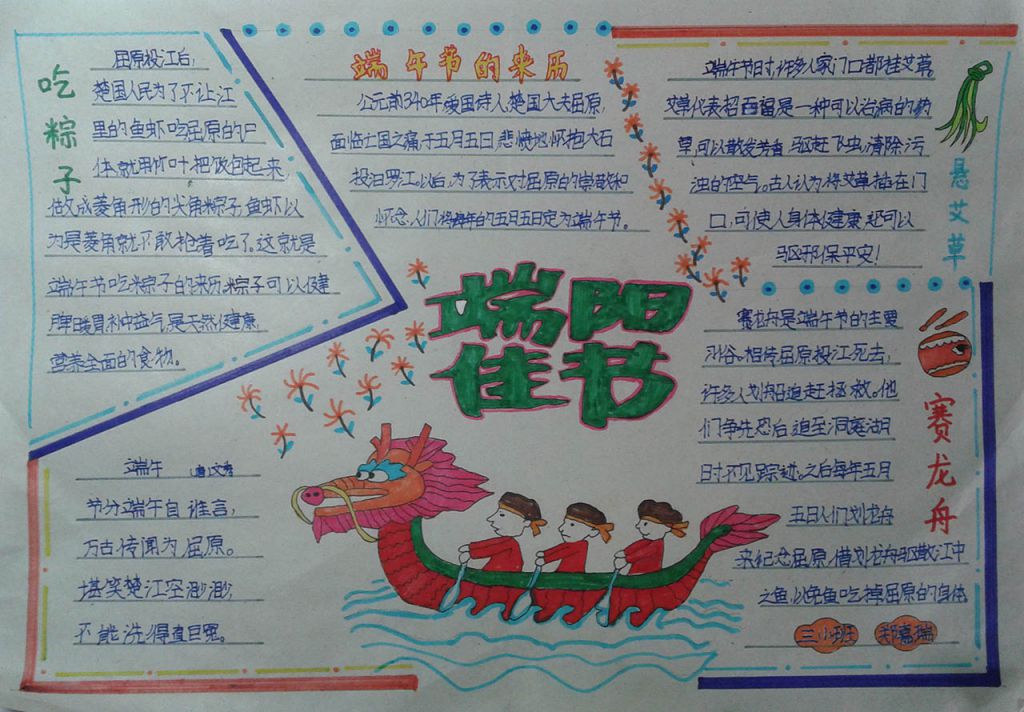 吃粽子
屈原投江后,
楚国人民为了不让江
里的鱼虾吃屈原的尸
体,就用竹叶把饭包起来,
做成菱角形的尖角粽子,鱼虾以
为是菱角就不敢抢着吃了。这就是
端午节吃粽子的来历,粽子可以健
脾暖胃补中益气,是天然健康,
营养全面的食物。
端午节的来历
公元前340年,爱国诗人,楚国大夫屈原,
面临亡国之痛,于五月五日,悲愤地怀抱大石
投汨罗江。以后,为了表示对屈原的崇敬和
怀念,人们将每年的五月五日定为端午节。
悬艾草
端午节时,许多人家门口都挂艾草,
艾草代表招百福,是一种可以治病的药
草,可以散发芳香,驱赶飞虫,清除污
浊的空气。古人认为将艾草插在门
口,可使人身体健康,还可以
驱邪保平安!
端阳
佳节
赛龙舟
赛龙舟是端午节的主要
习俗。相传屈原投江死去,
许多人划船追赶拯救。他
们争先恐后,追至洞庭湖
时不见踪迹。之后每年五月
五日人们划龙舟
来纪念屈原,借划龙舟驱散江中
之鱼,以免鱼吃掉屈原的身体。
三小班 郑嘉瑞
端午 (唐)文秀
节分端午自谁言,
万古传闻为屈原。
堪笑楚江空渺渺,
不能洗得直臣冤。